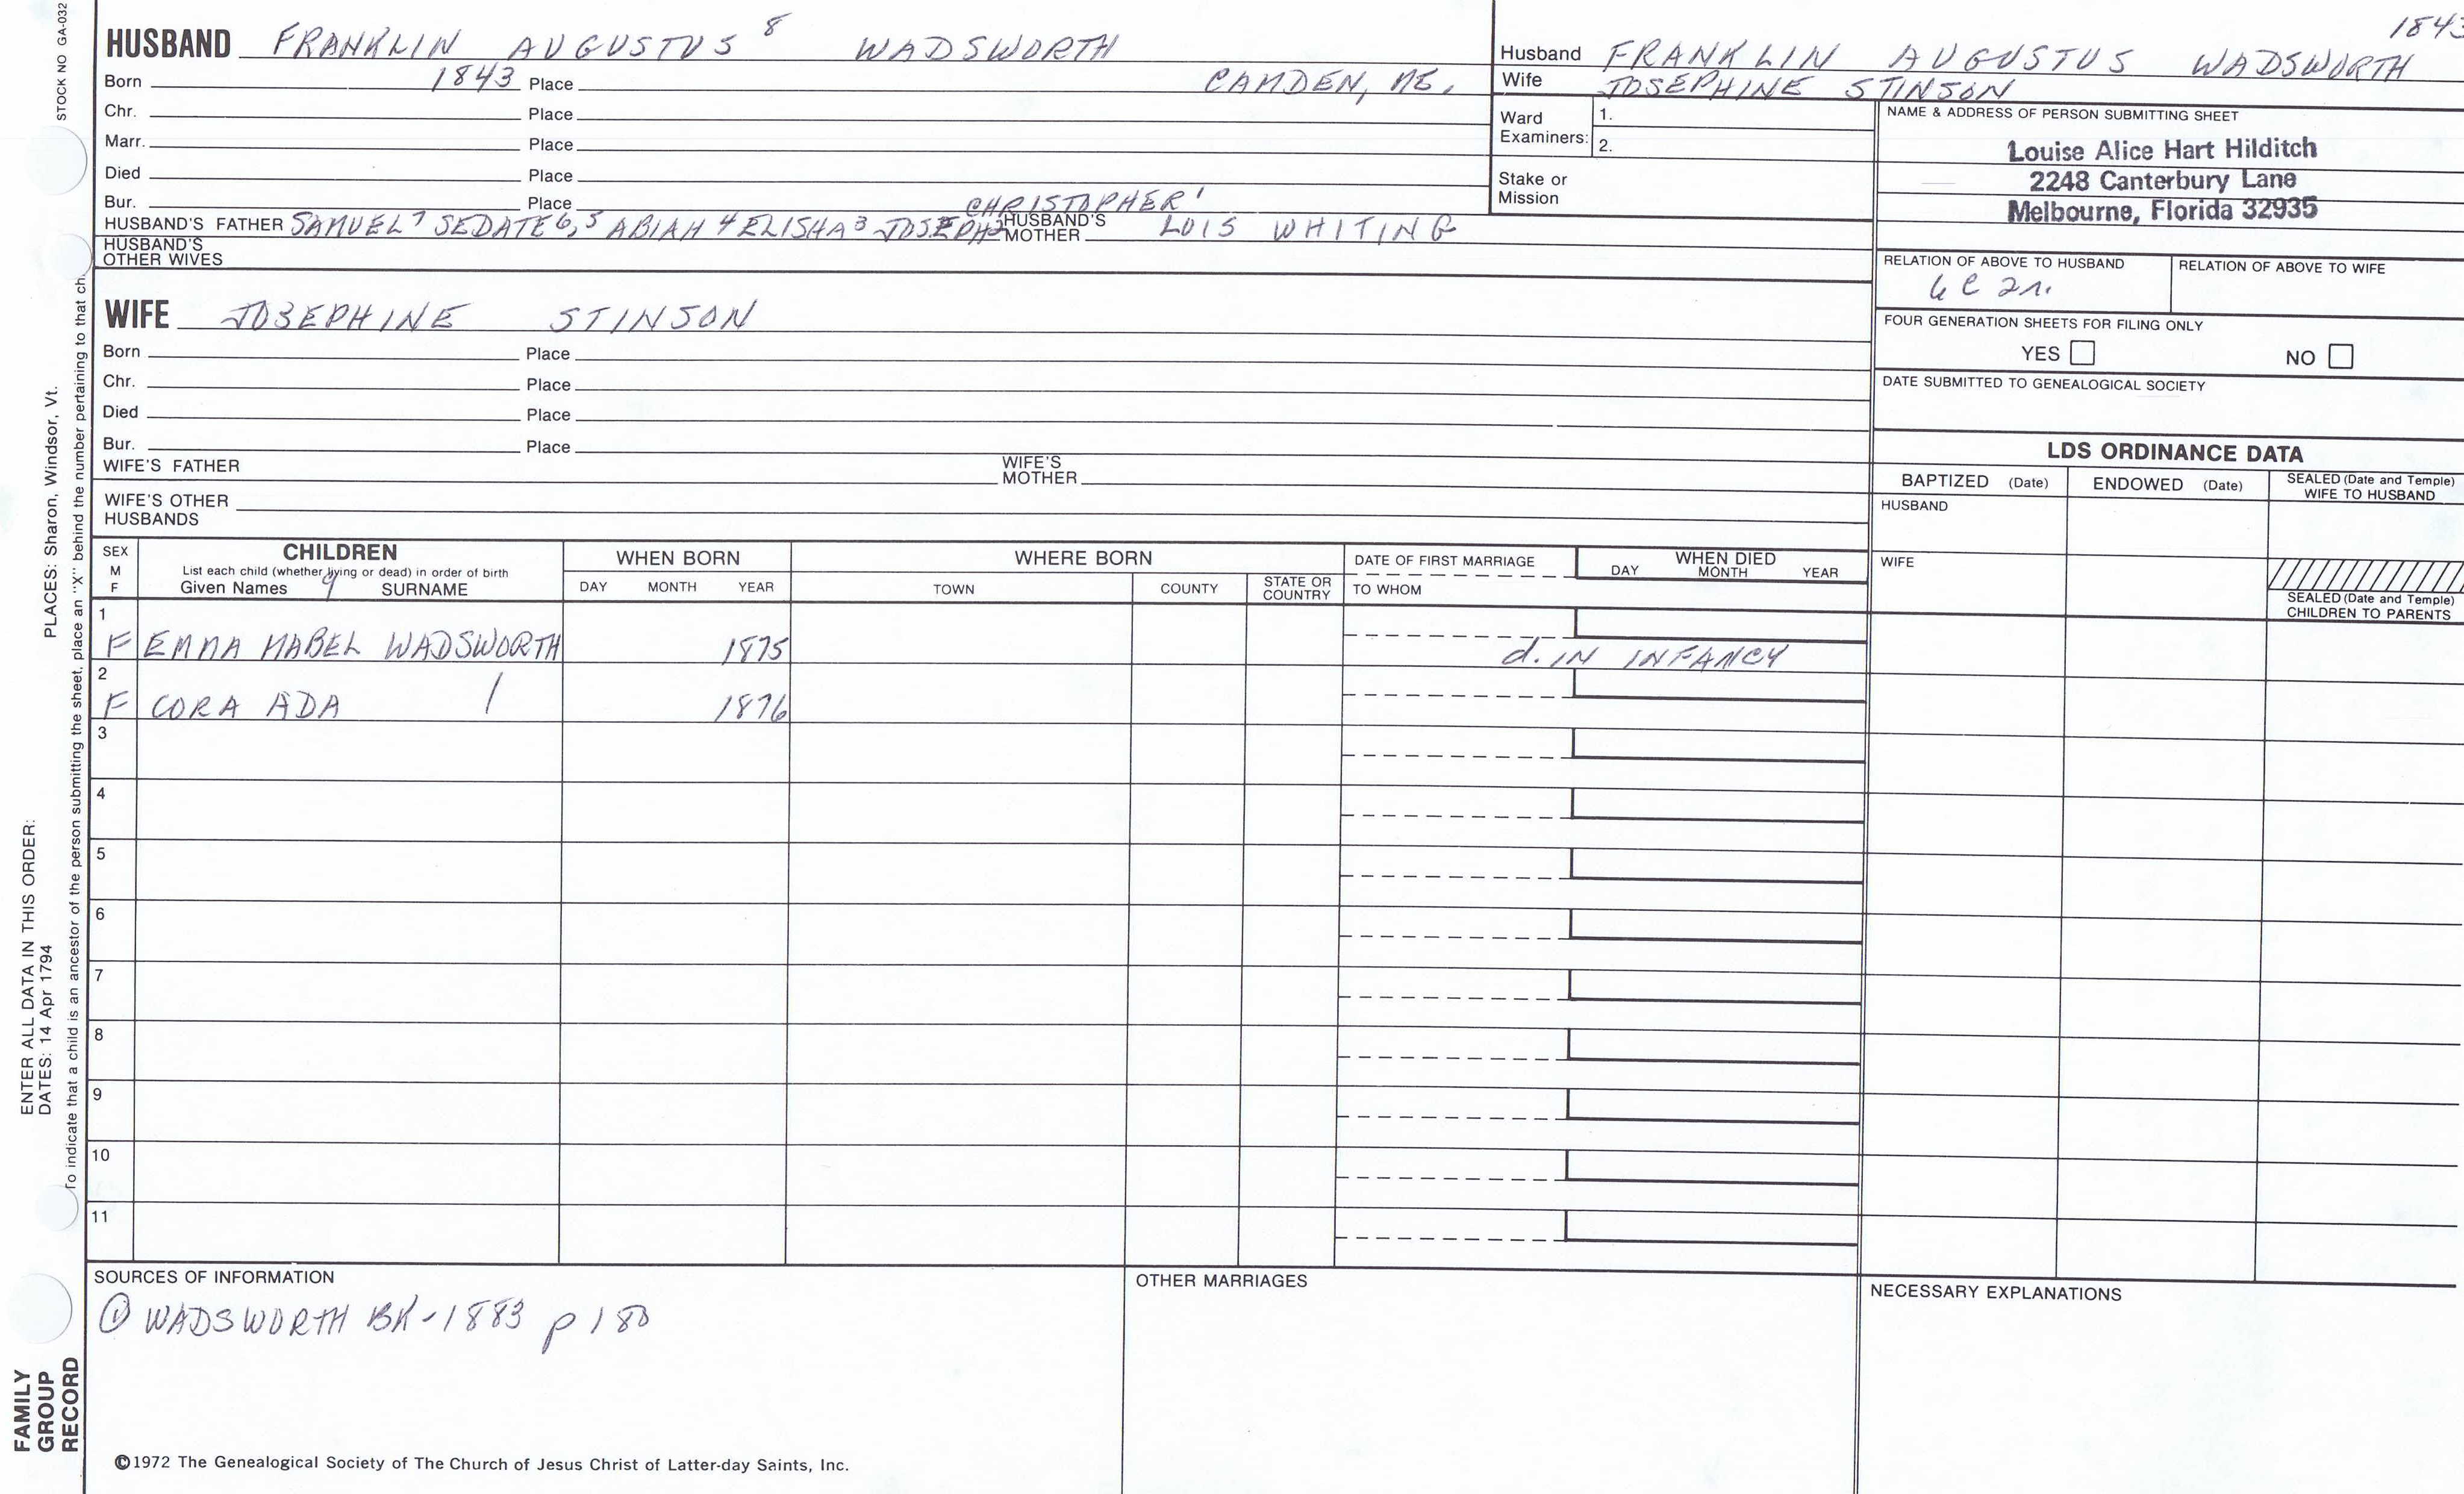 1843
HUSBAND FRANKLIN AUGUSTUS 8 WADSWORTH
Born 1843 Place CAMDEN, ME.
Chr. Place
Marr. Place
Died Place
Bur. Place
CHRISTOPHER 1
HUSBAND'S FATHER SAMUEL 7 SEDATE 6,5 ABIAH 4 ELISHA 3 JOSEPH 2 HUSBAND'S MOTHER LOIS WHITING
HUSBAND'S OTHER WIVES
Husband FRANKLIN AUGUSTUS WADSWORTH
Wife JOSEPHINE STINSON
Ward Examiners: 1.
2.
Stake or Mission
NAME & ADDRESS OF PERSON SUBMITTING SHEET
Louise Alice Hart Hilditch
2248 Canterbury Lane
Melbourne, Florida 32935
RELATION OF ABOVE TO HUSBAND
RELATION OF ABOVE TO WIFE
FOUR GENERATION SHEETS FOR FILING ONLY
YES NO
DATE SUBMITTED TO GENEALOGICAL SOCIETY
WIFE JOSEPHINE STINSON
Born Place
Chr. Place
Died Place
Bur. Place
WIFE'S FATHER WIFE'S MOTHER
WIFE'S OTHER HUSBANDS
LDS ORDINANCE DATA
BAPTIZED (Date) ENDOWED (Date) SEALED (Date and Temple) WIFE TO HUSBAND
HUSBAND
WIFE
SEALED (Date and Temple) CHILDREN TO PARENTS
SEX M F
CHILDREN
List each child (whether living or dead) in order of birth
Given Names 9 SURNAME
WHEN BORN
DAY MONTH YEAR
WHERE BORN
TOWN COUNTY STATE OR COUNTRY
DATE OF FIRST MARRIAGE
TO WHOM
WHEN DIED
DAY MONTH YEAR
1
F EMMA MABEL WADSWORTH 1875 d. IN INFANCY
2
F CORA ADA / 1876
3
4
5
6
7
8
9
10
11
SOURCES OF INFORMATION
① WADSWORTH BK-1883 p 180
OTHER MARRIAGES
NECESSARY EXPLANATIONS
©1972 The Genealogical Society of The Church of Jesus Christ of Latter-day Saints, Inc.
STOCK NO GA-032
ENTER ALL DATA IN THIS ORDER:
DATES: 14 Apr 1794 PLACES: Sharon, Windsor, Vt.
To indicate that a child is an ancestor of the person submitting the sheet, place an "X" behind the number pertaining to that ch
FAMILY
GROUP
RECORD